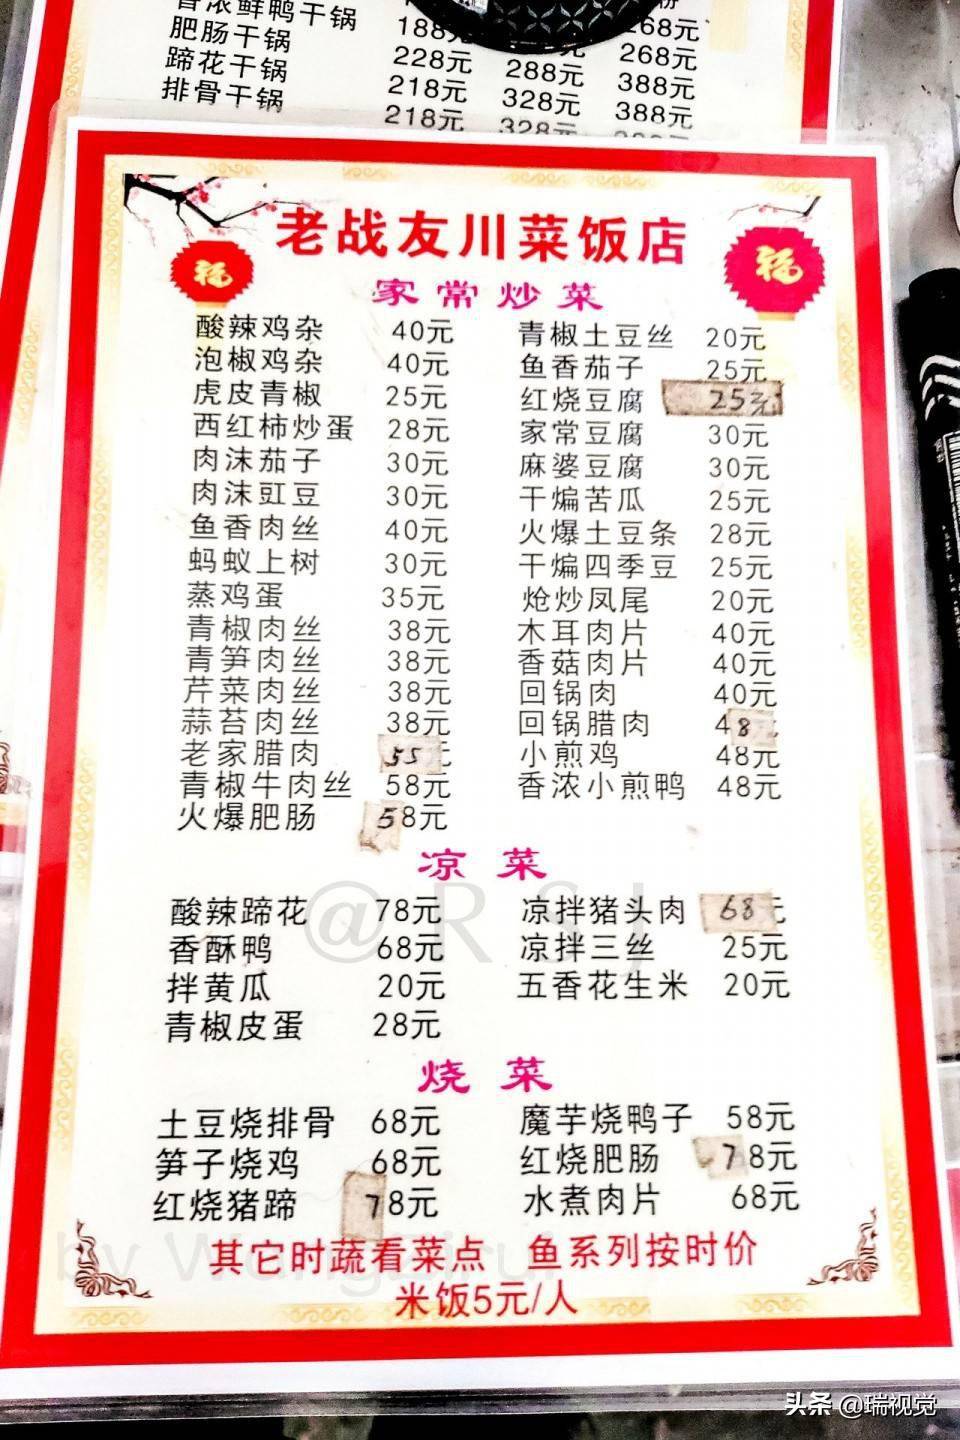 香浓鲜鸭干锅 268元
肥肠干锅 188元 268元
蹄花干锅 228元 288元 388元
排骨干锅 218元 328元 388元
218元 328元
老战友川菜饭店
福 福
家常炒菜
酸辣鸡杂 40元 青椒土豆丝 20元
泡椒鸡杂 40元 鱼香茄子 25元
虎皮青椒 25元 红烧豆腐 25元
西红柿炒蛋 28元 家常豆腐 30元
肉沫茄子 30元 麻婆豆腐 30元
肉沫豇豆 30元 干煸苦瓜 25元
鱼香肉丝 40元 火爆土豆条 28元
蚂蚁上树 30元 干煸四季豆 25元
蒸鸡蛋 35元 炝炒凤尾 20元
青椒肉丝 38元 木耳肉片 40元
青笋肉丝 38元 香菇肉片 40元
芹菜肉丝 38元 回锅肉 40元
蒜苔肉丝 38元 回锅腊肉 48元
老家腊肉 55元 小煎鸡 48元
青椒牛肉丝 58元 香浓小煎鸭 48元
火爆肥肠 58元
凉菜
酸辣蹄花 78元 凉拌猪头肉 68元
香酥鸭 68元 凉拌三丝 25元
拌黄瓜 20元 五香花生米 20元
青椒皮蛋 28元
@RSJ
烧菜
土豆烧排骨 68元 魔芋烧鸭子 58元
笋子烧鸡 68元 红烧肥肠 78元
红烧猪蹄 78元 水煮肉片 68元
其它时蔬看菜点 鱼系列按时价
米饭5元/人
头条 @瑞视觉